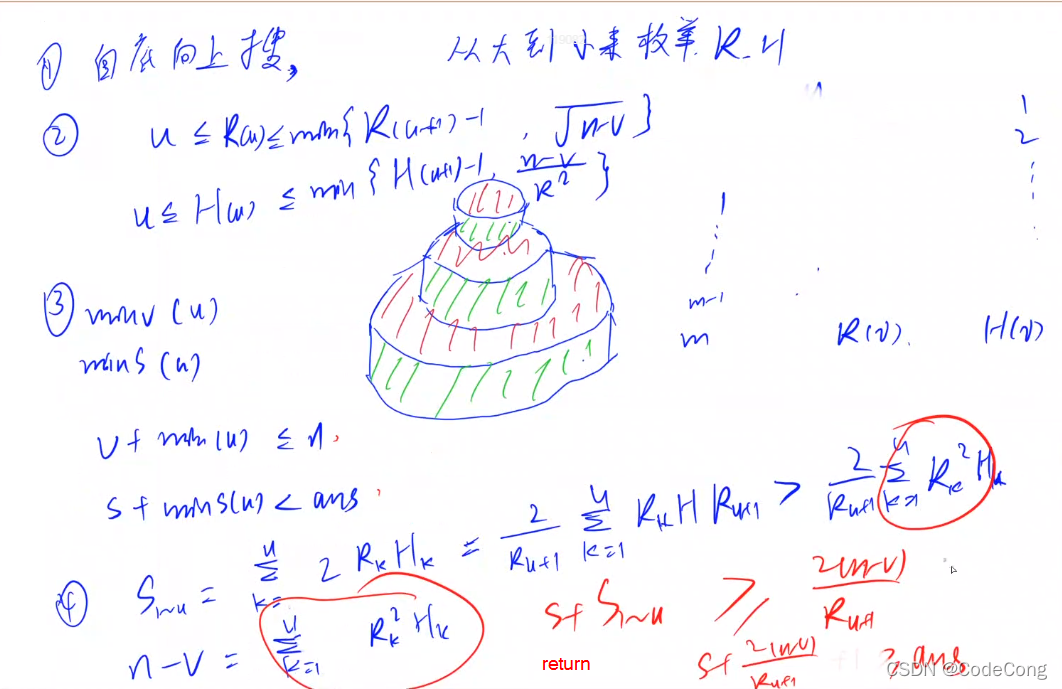 ① 自底向上搜， 从大到小来枚举 R.H
② u ≤ R(u) ≤ min{R(u+1)-1, √n-v}
u ≤ H(u) ≤ min{H(u+1)-1, n-v/R²}
1
2
1
m-1
m R(v). H(v)
③ minv(u)
mins(u)
v + min(u) ≤ n.
s + mins(u) < ans
④ S₁~u = Σ(k=1..u) 2 RₖHₖ = 2/Rᵤ₊₁ Σ(k=1..u) RₖH Rᵤ₊₁ > 2/Rᵤ₊₁ Σ(k=1..u) Rₖ²Hₖ
n-v = Σ(k=1..u) Rₖ²Hₖ
S + S₁~u ≥ 2(n-v)/Rᵤ₊₁
S + 2(n-v)/Rᵤ₊₁ ≥ ans
return
CSDN @CodeCong